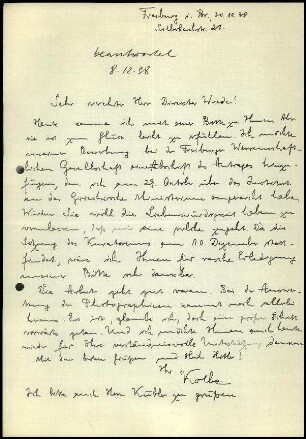 Freiburg i. Br., 20.11.38
beantwortet
8.12.38
Sehr verehrter Herr Direktor
Heute komme ich mit einer Bitte zu Ihnen, die
sie wir zum Glück leicht zu erfüllen. Ich möchte
unserer Bewerbung bei der Freiburger Wissenschaft-
lichen Gesellschaft eine Abschrift des Antrages beige-
fügen, den ich am 29. Oktober über das Institut
an das Ministerium eingereicht habe.
Würden Sie wohl die haben zu
veranlassen, daß mir eine solche zugeht. Da die
Sitzung des Kuratoriums am 10. Dezember statt-
findet, wäre ich Ihnen für rasche Erledigung
meiner Bitte sehr dankbar.
Die Arbeit geht gut voran. Bei der Auswer-
tung der Photographien kommt noch allerlei
heraus. Es ist, glaube ich, doch ein großer Schritt
vorwärts getan. Und ich möchte Ihnen auch heute
wieder für Ihre verständnisvolle Unterstützung danken.
Mit den besten Grüßen und Heil Hitler!
Ihr
Kolbe
Ich bitte auch Herrn Kübler zu grüßen